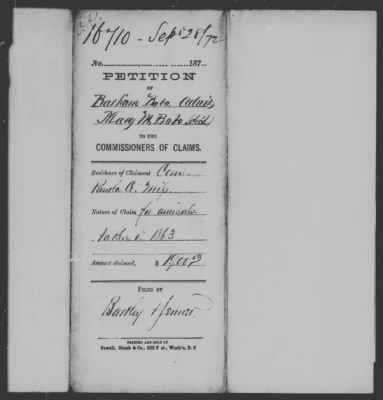 16710 - Sept 28/72
No. 187
PETITION
OF
Barham Bobo Admr
Mary M. Bobo
TO THE
COMMISSIONERS OF CLAIMS.
Residence of Claimant Como
Panola Co. Miss
Nature of Claim for animals
taken in 1863
Amount claimed, $
FILED BY
Bartley &
PRINTED AND SOLD BY
Powell, Ginck & Co., 632 F st., Wash'n, D. C